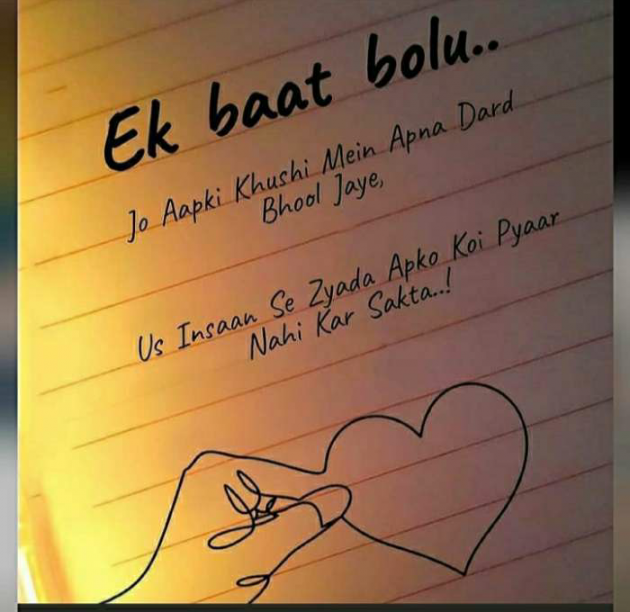 Ek baat bolu..
Jo Aapki Khushi Mein Apna Dard
Bhool Jaye,
Us Insaan Se Zyada Apko Koi Pyaar
Nahi Kar Sakta..!